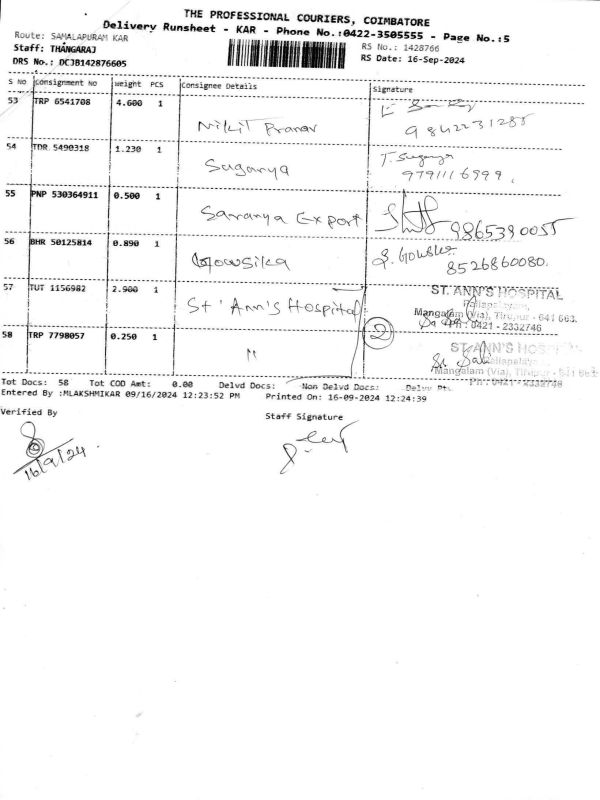 THE PROFESSIONAL COURIERS, COIMBATORE
Delivery Runsheet - KAR - Phone No.:0422-3505555 - Page No.:5
Route: SAMALAPURAM KAR
RS No.: 1428766
Staff: THANGARAJ
DRS No.: DCJB142876605
RS Date: 16-Sep-2024
S No Consignment No Weight PCS Consignee Details Signature
53 TRP 6541708 4.600 1 Nikit Pranav
9842231285
54 TDR 5490318 1.230 1 Suganya T. Suganya
9791116999.
55 PNP 530364911 0.500 1 Saranya Export 9865390055
56 BHR 50125814 0.890 1 Gowsika G. Gowsika
8526860080.
57 TUT 1156982 2.900 1 St' Ann's Hospital
ST. ANN'S HOSPITAL
Mangalam (Via), Tirupur - 641 663.
PH: 0421 - 2332746
2
58 TRP 7798057 0.250 1 "
ST. ANN'S HOSPITAL
Mangalam (Via), Tirupur - 641 663
PH: 0421 - 2332746
Tot Docs: 58 Tot COD Amt: 0.00 Delvd Docs: Non Delvd Docs:
Entered By :MLAKSHMIKAR 09/16/2024 12:23:52 PM Printed On: 16-09-2024 12:24:39
Verified By Staff Signature
16/9/24